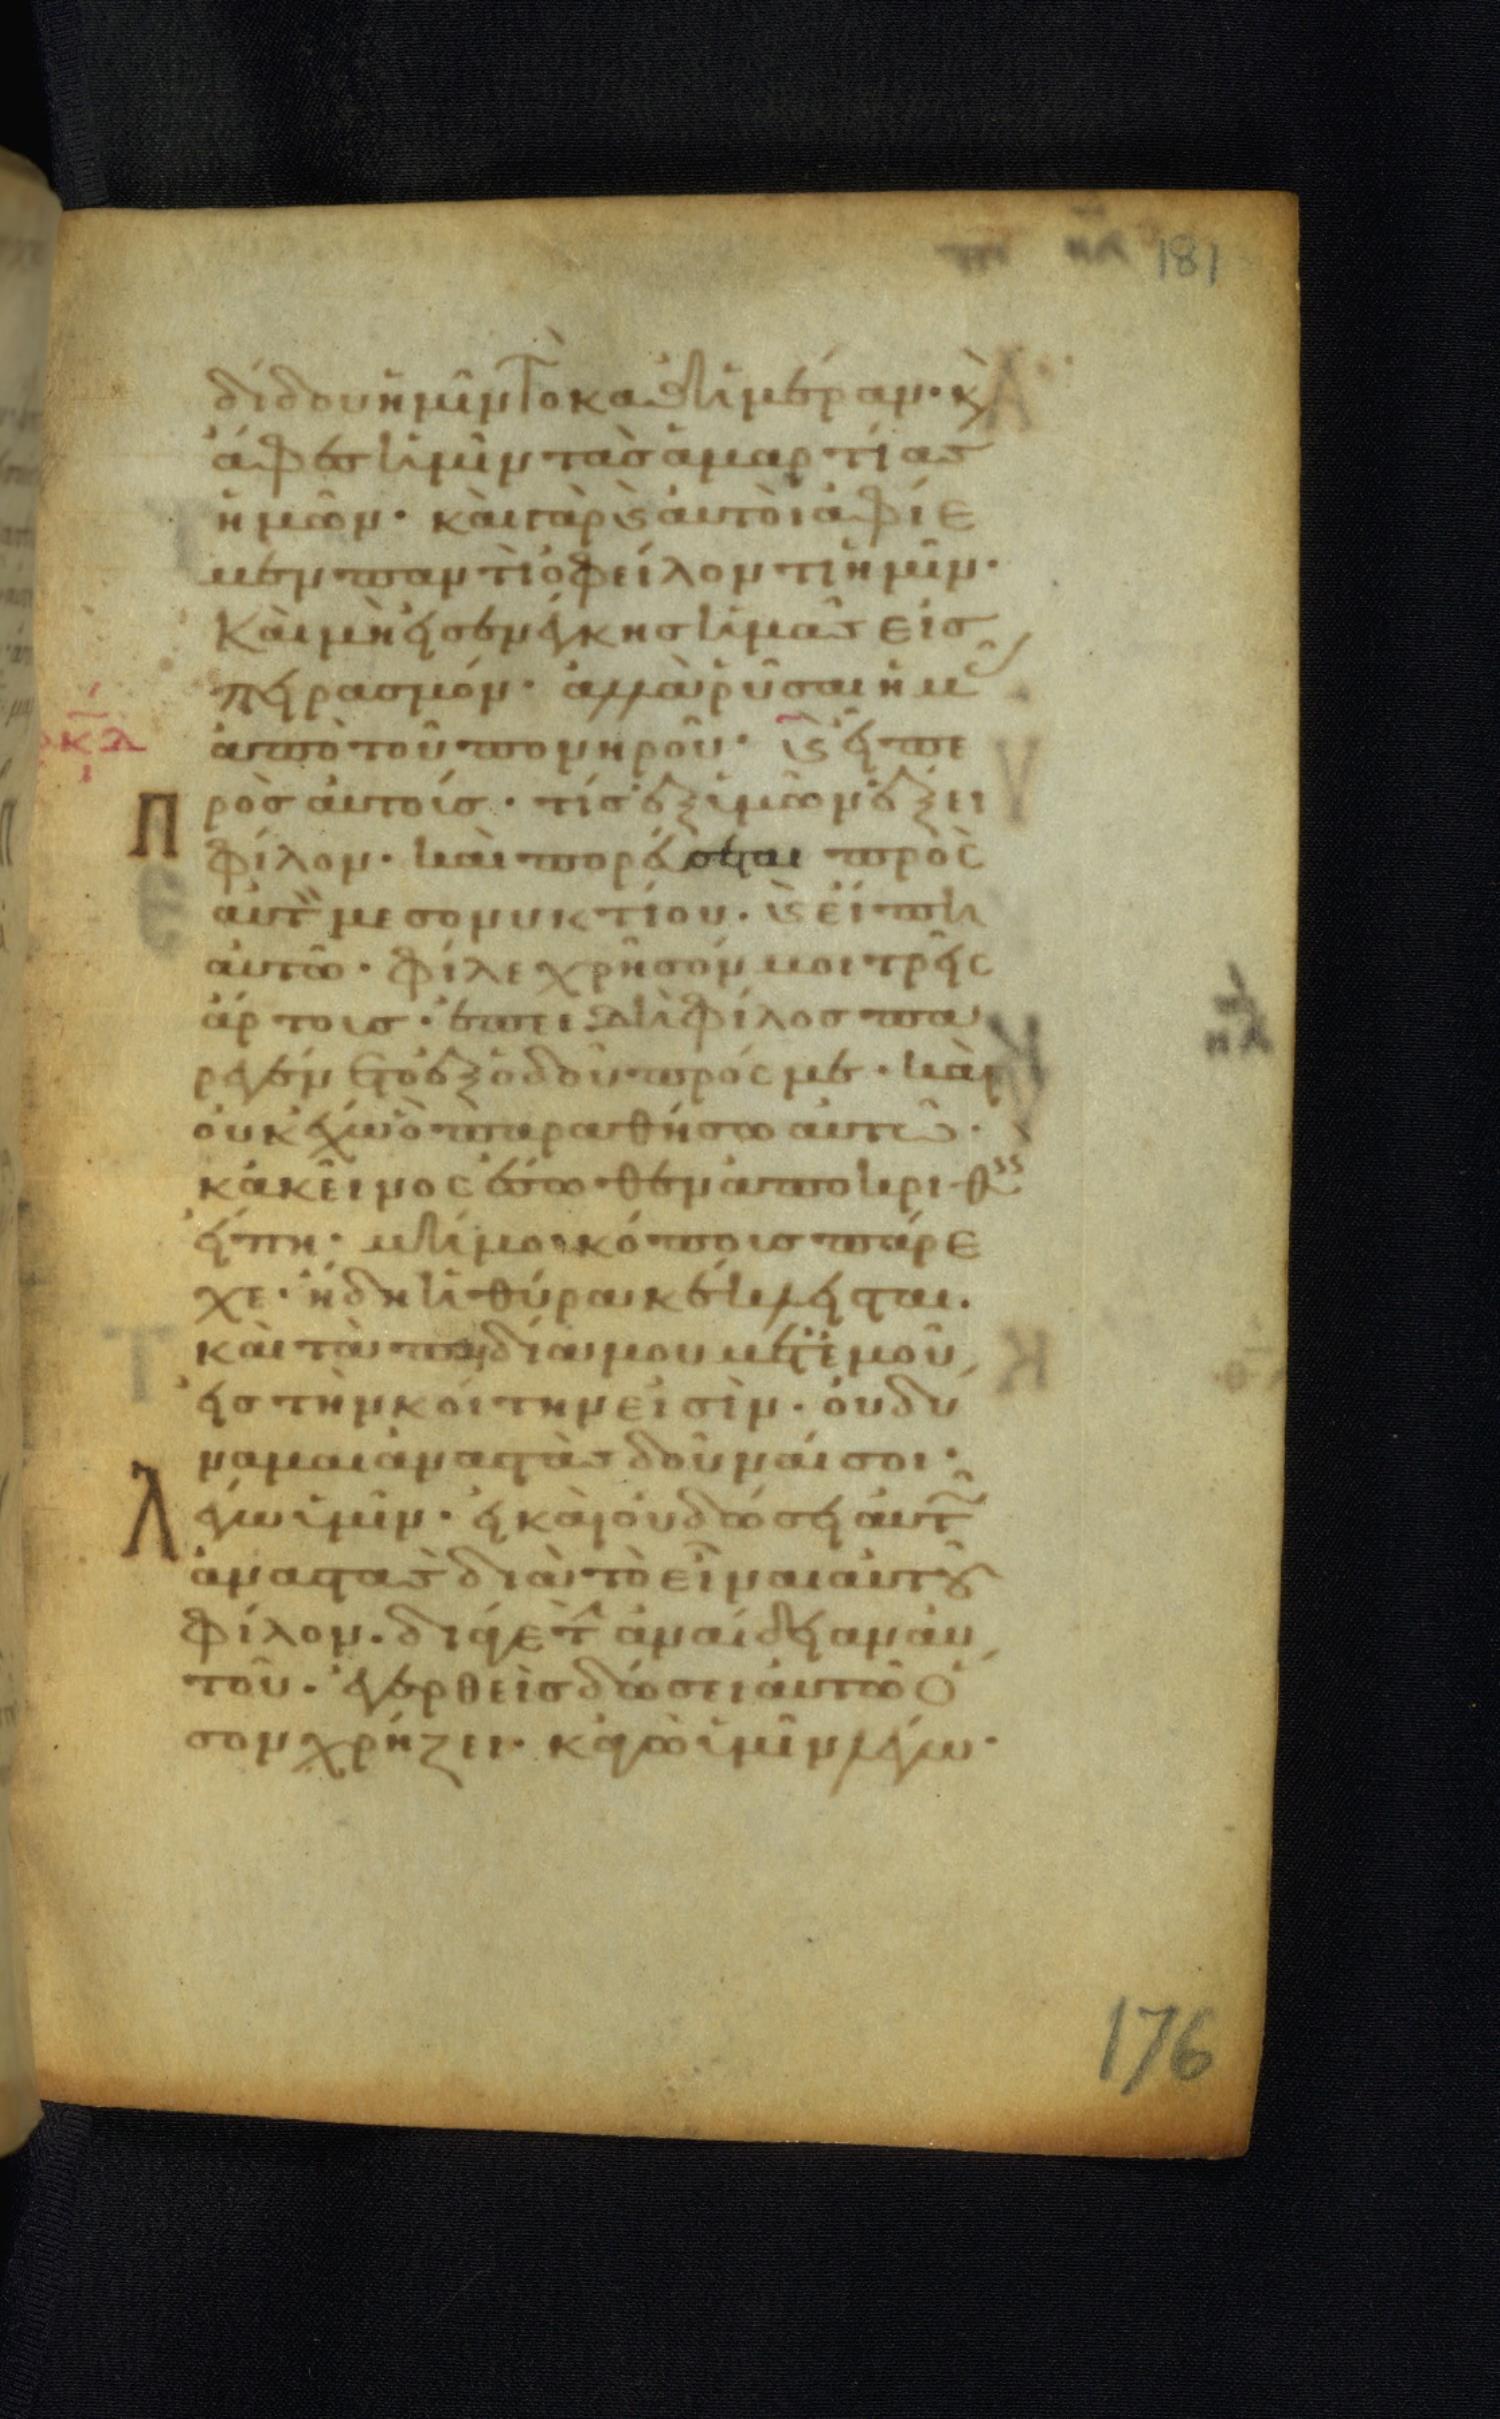 181
δίδου ἡμῖν τὸ καθἡμέραν· κ(αὶ)
ἄφες ἡμῖν τὰς ἁμαρτίας
ἡμῶν· καὶ γὰρ κ(αὶ) αὐτοὶ ἀφίε
μεν παντὶ ὀφείλοντι ἡμῖν·
Καὶ μὴ εἰσενείκης ἡμᾶς εἰς
πειρασμόν· ἀλλὰ ῥῦσαι ἡμᾶς
ἀπὸ τοῦ πονηροῦ· κ(αὶ) εἶπε
Πρὸς αὐτοίς· τίς ἐξ ὑμῶν ἕξει
φίλον· καὶ πορεύσεται πρὸς
αὐτὸν μεσονυκτίου· κ(αὶ) εἴπη
αὐτῶ· φίλε χρῆσόν μοι τρεῖς
ἄρτοις· ἐπειδὴ φίλος πα
ρεγένετο ἐξ ὁδοῦ πρός με· καὶ
οὐκ ἔχω ὃ παραθήσω αὐτῶ·
κἀκεῖνος ἔσωθεν ἀποκριθεὶς
εἴπη· μή μοι κόποις πάρε
χε· ἤδη ἡ θύρα κέκλεισται·
καὶ τὰ παιδία μου μετ' ἐμοῦ
εἰς τὴν κοίτην εἰσὶν· οὐ δύ
ναμαι ἀναστὰς δοῦναί σοι·
Λέγω ὑμῖν· εἰ καὶ οὐ δώσει αὐτῶ
ἀναστὰς διὰ τὸ εἶναι αὐτοῦ
φίλον· διά γε τ(ὴν) ἀναίδειαν αὐ
τοῦ· ἐγερθεὶς δώσει αὐτῶ ὅ
σον χρήζει· κἀγὼ ὑμῖν λέγω·
176